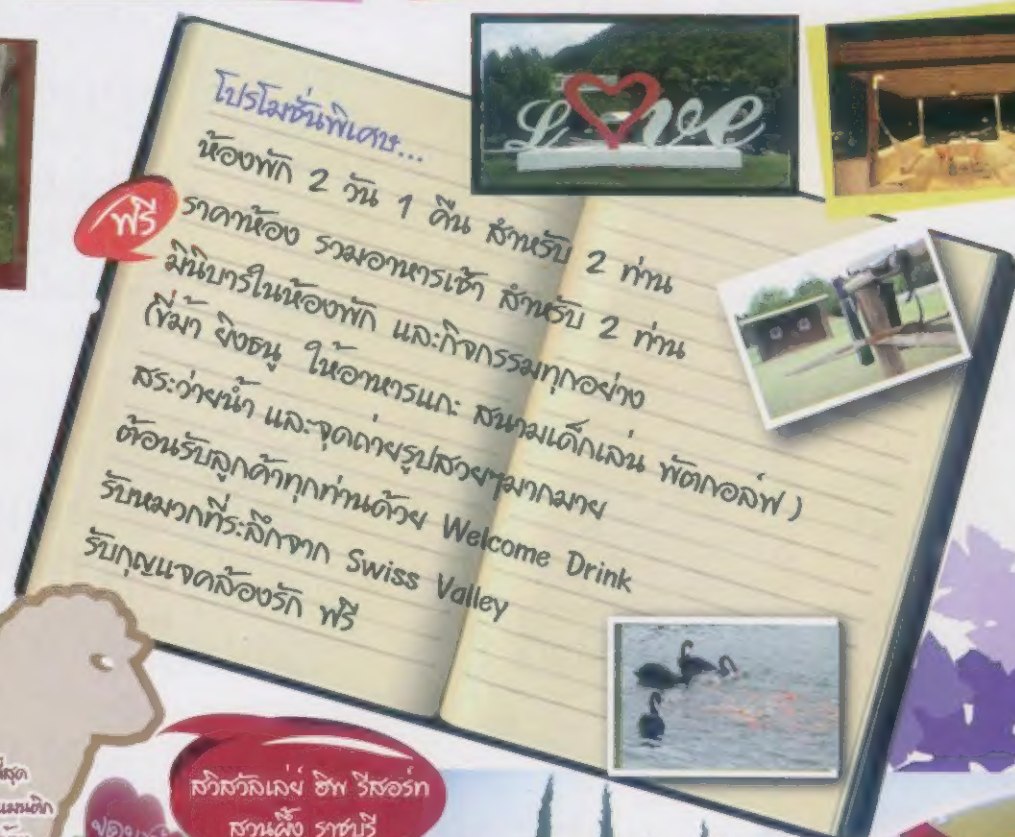 Love
โปรโมชั่นพิเศษ...
ห้องพัก 2 วัน 1 คืน สำหรับ 2 ท่าน
ราคาห้อง รวมอาหารเช้า สำหรับ 2 ท่าน
ฟรี
มินิบาร์ในห้องพัก และกิจกรรมทุกอย่าง
(ขี่ม้า ยิงธนู ให้อาหารแกะ สนามเด็กเล่น พัตกอล์ฟ)
สระว่ายน้ำ และจุดถ่ายรูปสวยๆมากมาย
ต้อนรับลูกค้าทุกท่านด้วย Welcome Drink
รับหมวกที่ระลึกจาก Swiss Valley
รับกุญแจคล้องรัก ฟรี
สวิสวัลเลย์ ฮิพ รีสอร์ท
สวนผึ้ง ราชบุรี